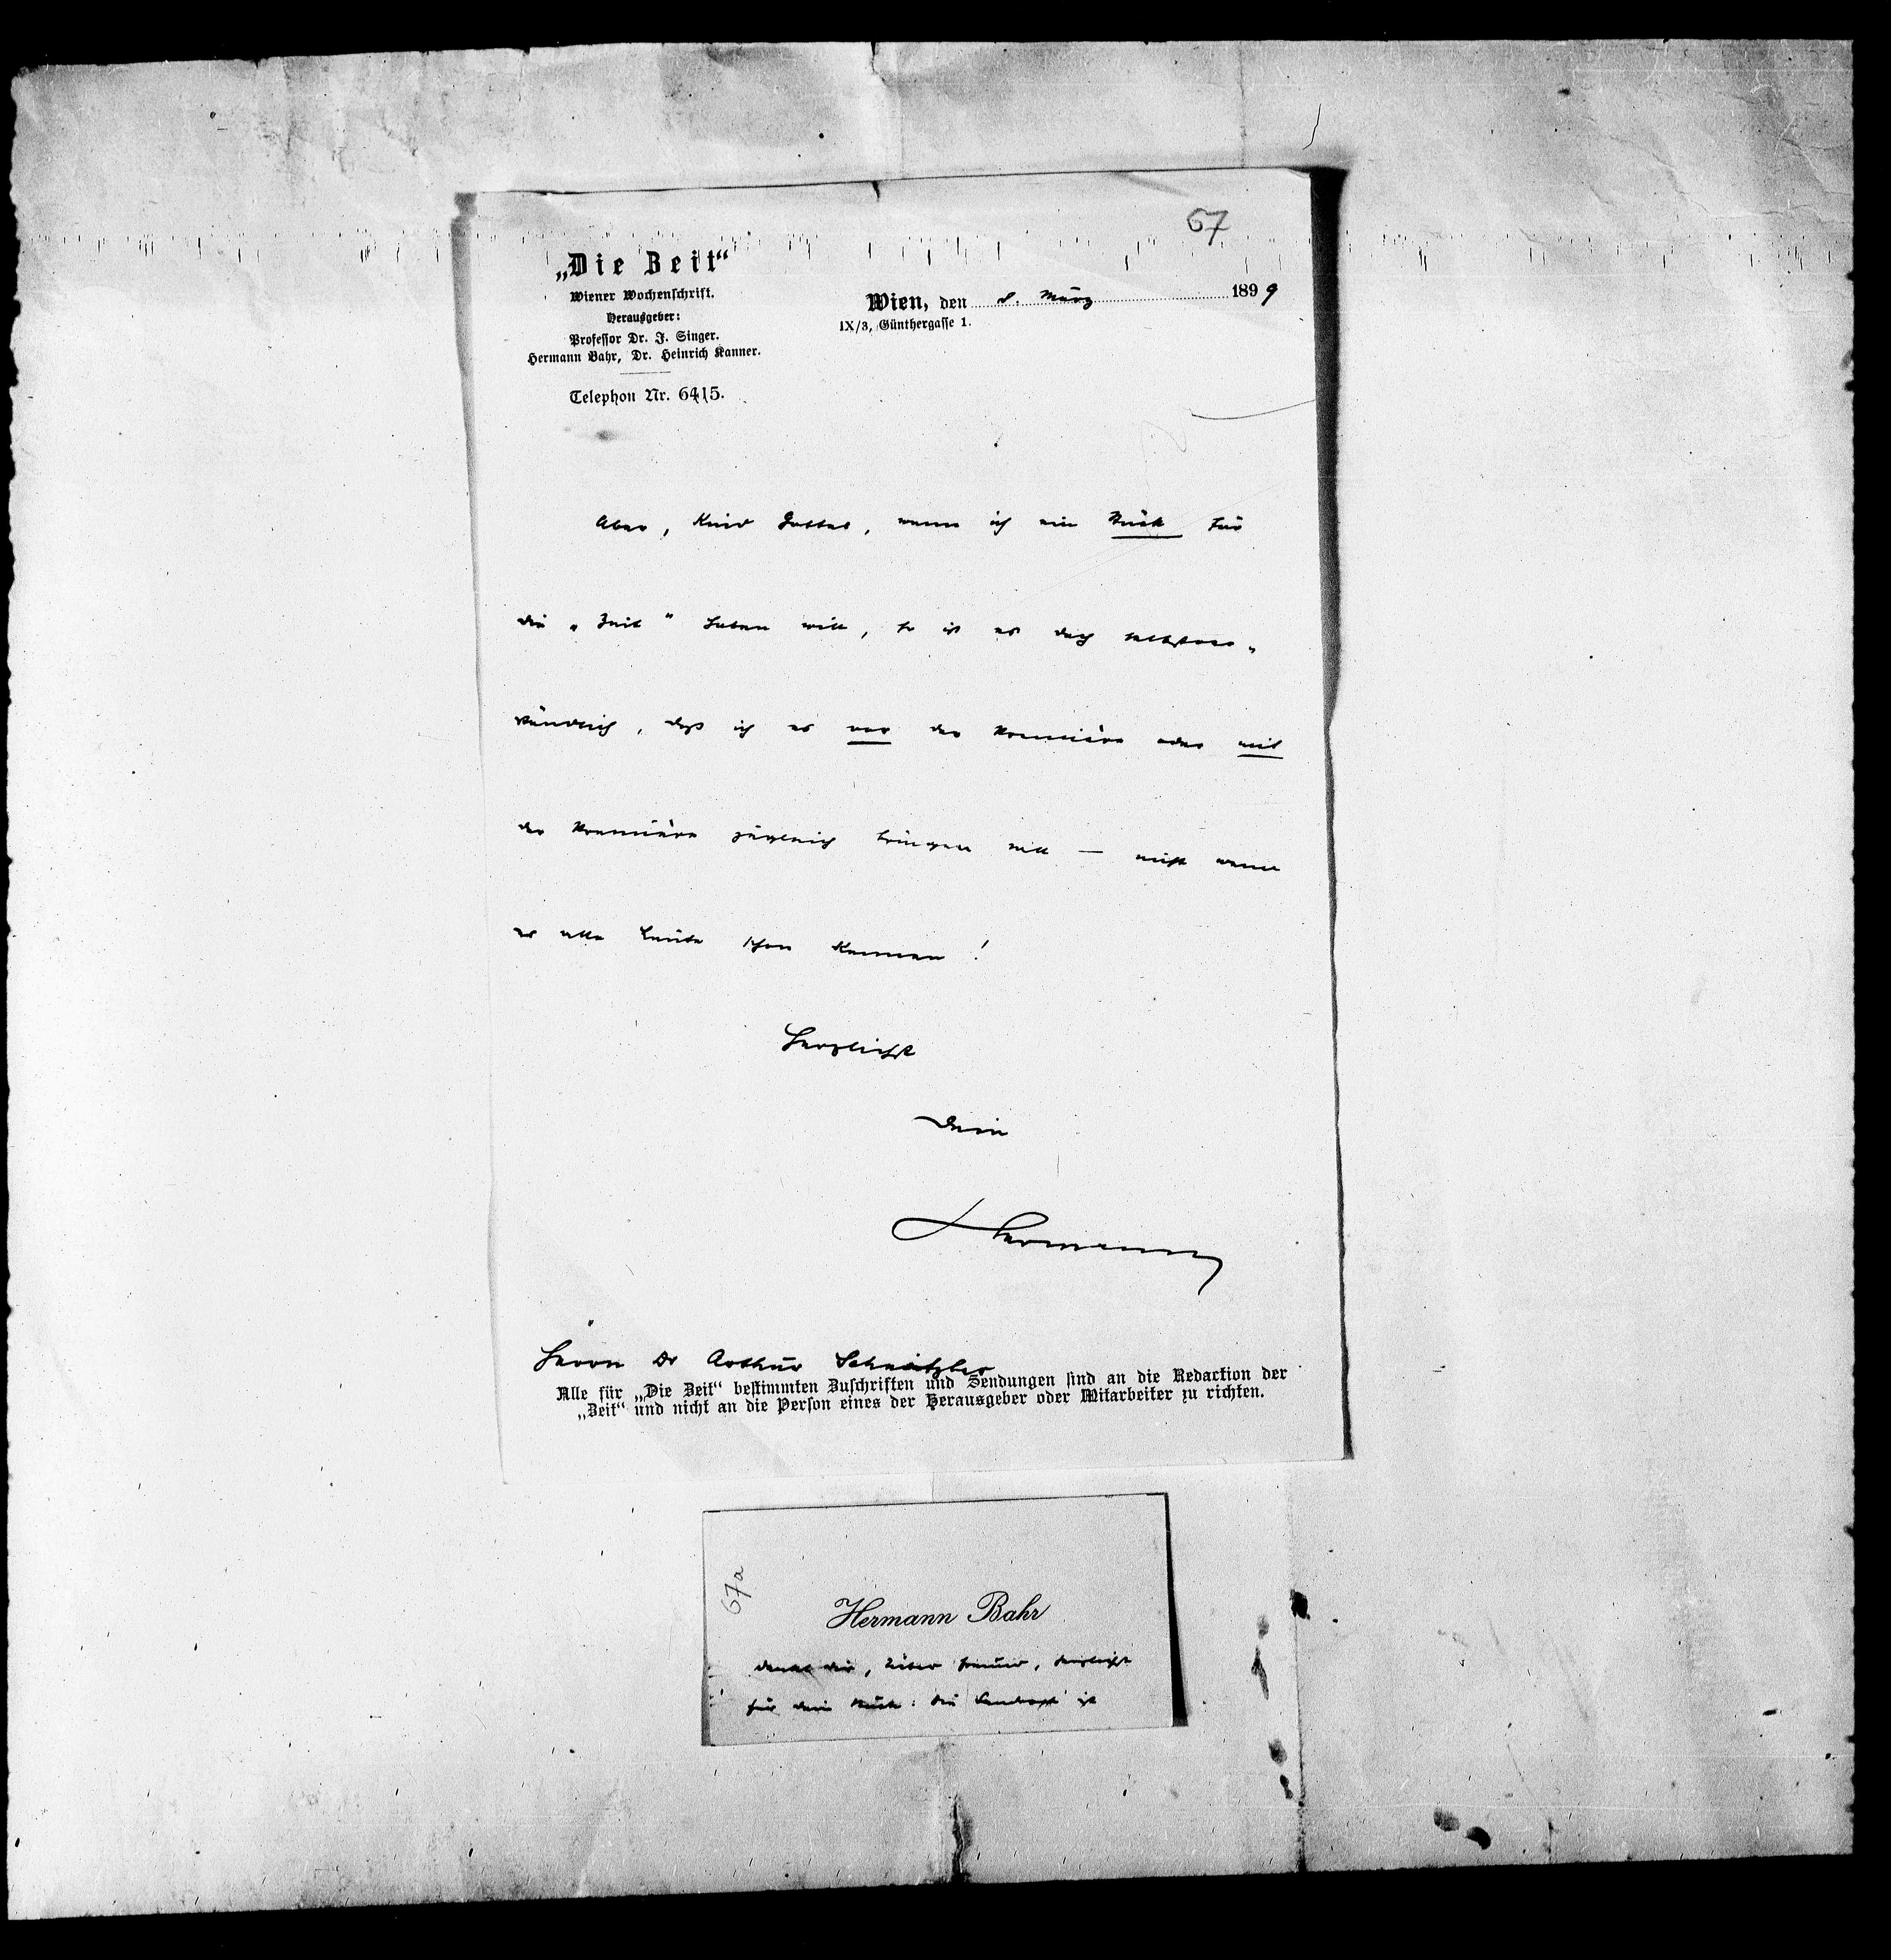 67
„Die Zeit“
Wiener Wochenschrift.
Herausgeber:
Professor Dr. J. Singer.
Hermann Bahr, Dr. Heinrich Kanner.
Telephon Nr. 6415.
Wien, den 8. März 1899
IX/3, Günthergasse 1.
Aber, Kind Gottes, wenn ich ein Stück für
die „Zeit“ haben will, so ist es doch selbstver-
ständlich, daß ich es vor der Première oder mit
der Première zugleich bringen will – nicht wenn
es alle Leute schon kennen!
Herzlichst
Dein
Hermann
Herrn Dr Arthur Schnitzler
Alle für „Die Zeit“ bestimmten Zuschriften und Sendungen sind an die Redaction der
„Zeit“ und nicht an die Person eines der Herausgeber oder Mitarbeiter zu richten.
67a
Hermann Bahr
dankt dir, lieber Freund, herzlichst
für dein Stück: die ist